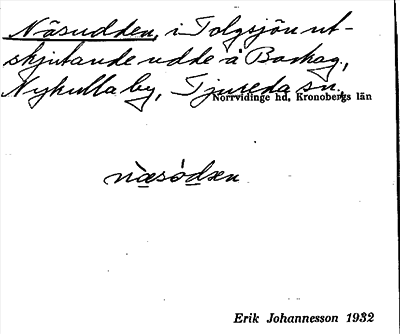 Näsudden, i Tolgsjön ut-
skjutande udde å Boshag.,
Nykulla by, Tjureda sn.,
Norrvidinge hd, Kronobergs län
næsódxn
Erik Johannesson 1932